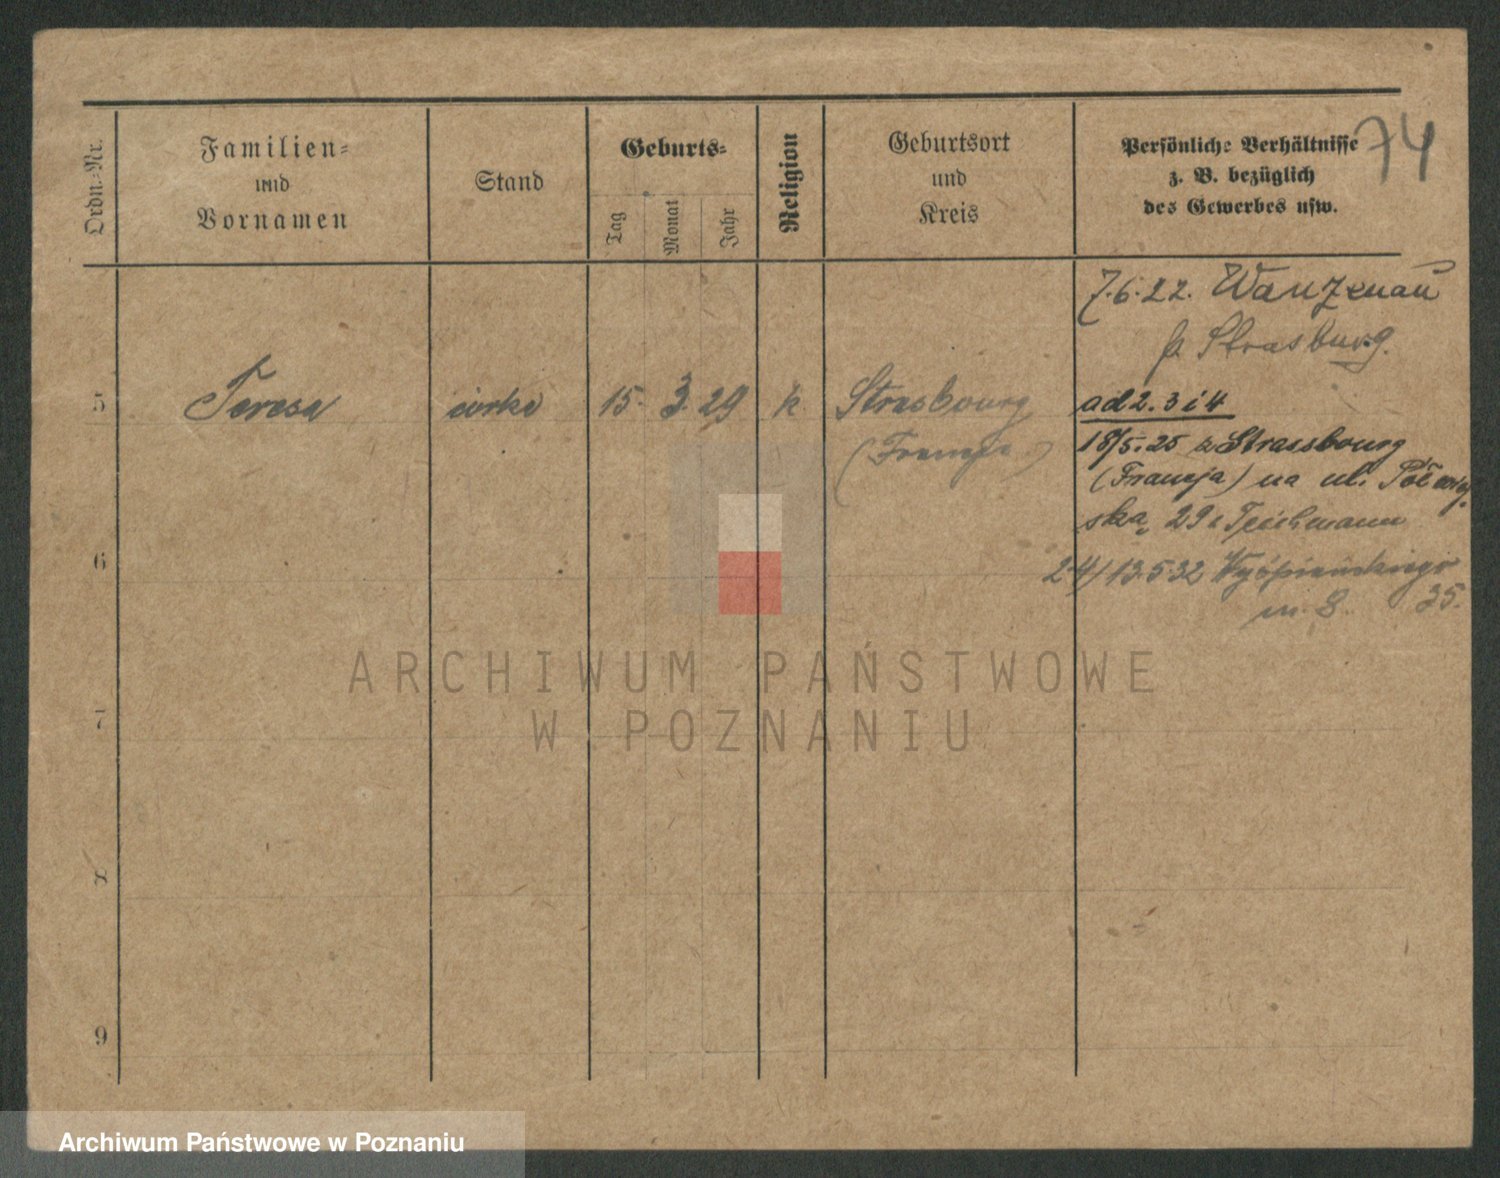 74
Ordn.-Nr.
Familien-
und
Vornamen
Stand
Geburts-
Tag
Monat
Jahr
Religion
Geburtsort
und
Kreis
Persönliche Verhältnisse
z. B. bezüglich
des Gewerbes usw.
7.6.22. Wanzenau
p Strasburg.
5 Teresa córka 15. 3. 29 k Strasbourg
(Francja)
ad 2. 3 i 4
18/5.25 z Strassbourg
(Francja) na ul.
ska 29 Teichmann
6
24/13.5.32 Wyspiańskiego
m. 8. 35.
7
8
9
ARCHIWUM PAŃSTWOWE
W POZNANIU
Archiwum Państwowe w Poznaniu